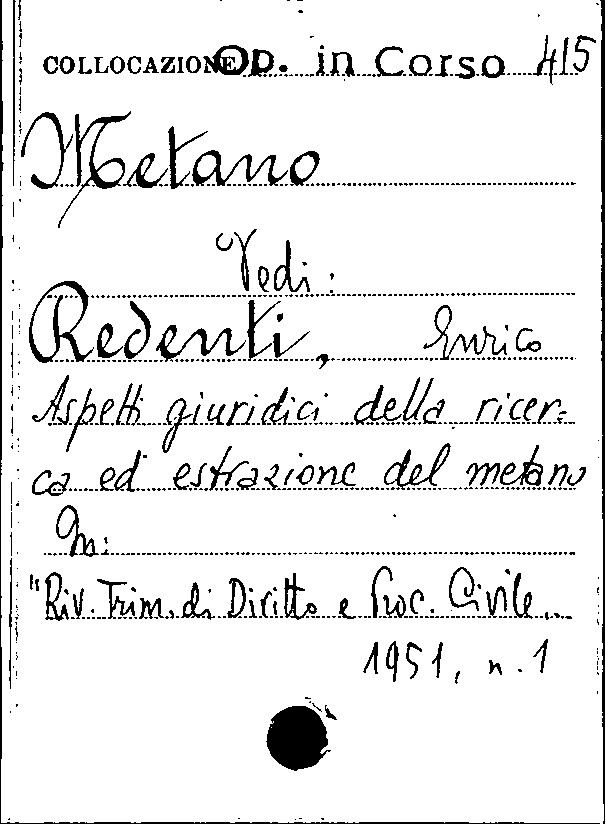 COLLOCAZIONE OD. in Corso 415
Metano
Vedi:
Redenti, Enrico
Aspetti giuridici della ricer=
ca ed estrazione del metano
In:
"Riv. Trim. di Diritto e Proc. Civile"
1951, n. 1